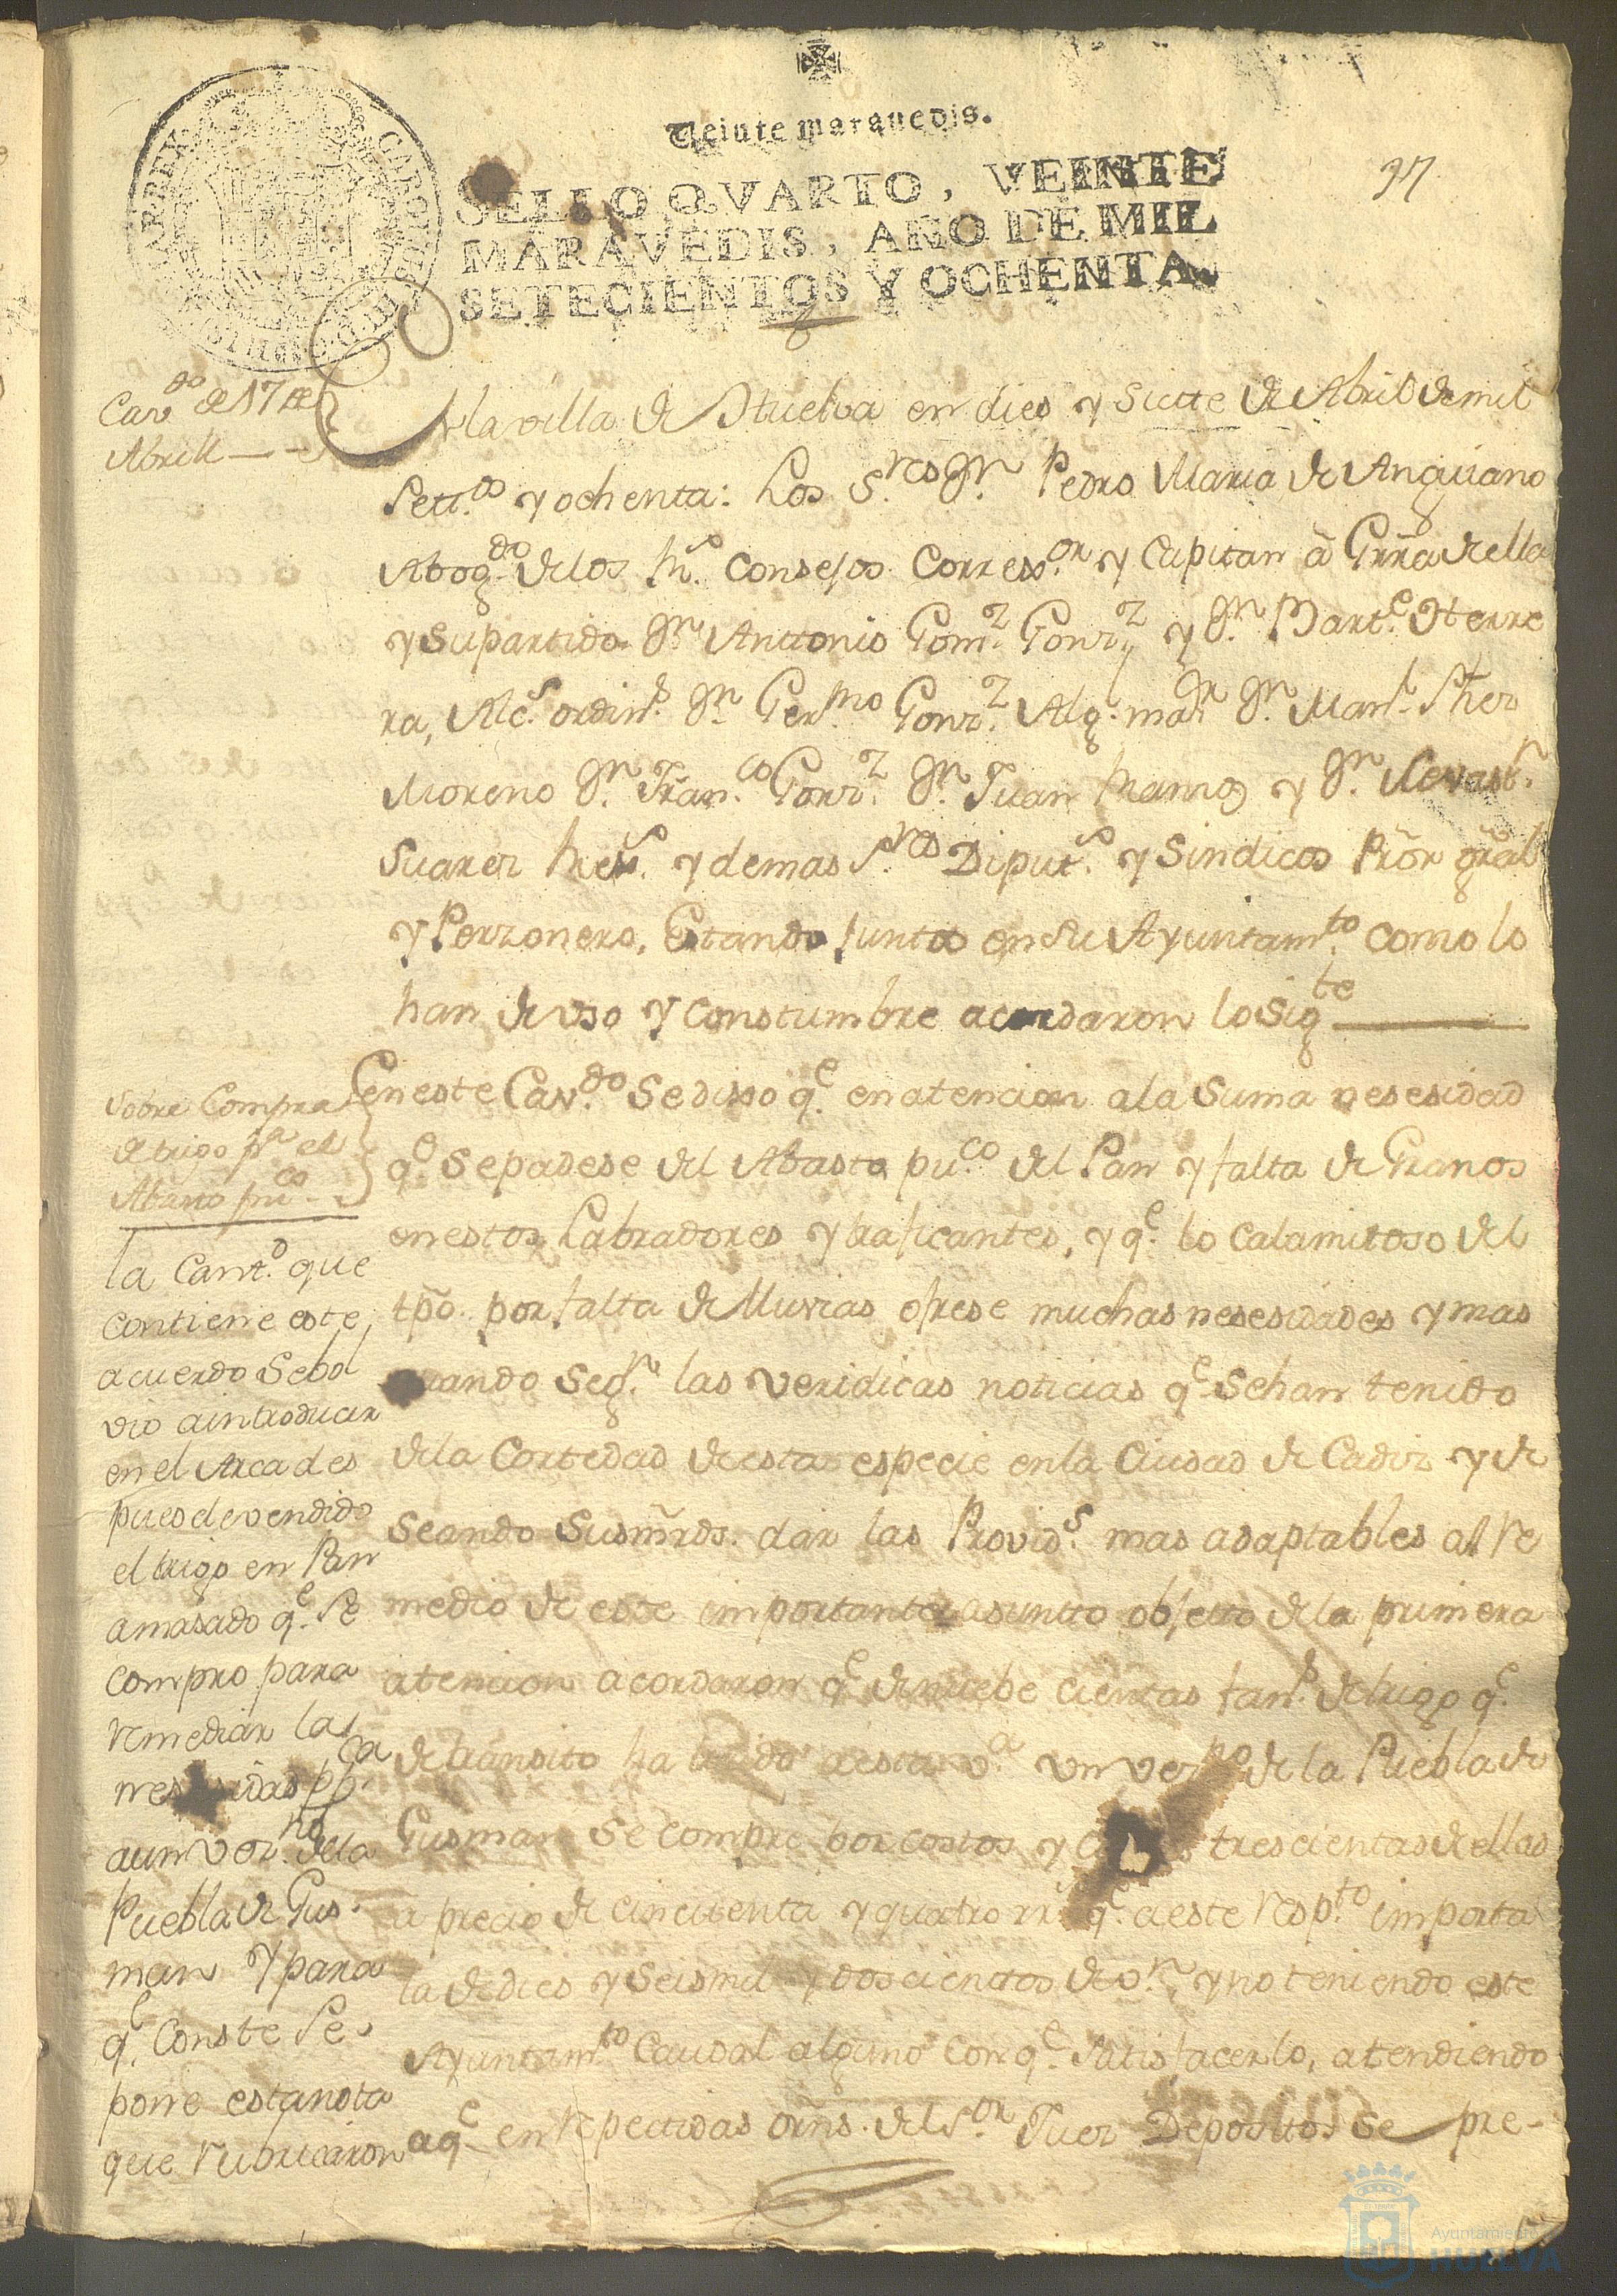 Veinte maravedis.
SELLO QVARTO, VEINTE
MARAVEDIS, AÑO DE MIL
SETECIENTOS Y OCHENTA.
37
Cav.do de 17 de
Abrill
En la villa de Huelva en dies y Siette de Abril de mil
Sett.os y ochenta: Los S.res Dn. Pedro Maria de Anguiano
Abog.do de los Rs. Consejos Correx.or y Capitan â Grra de ella
y Su partido Dn. Anttonio Gom.z Gonz.z y Dn. Bart.e Herre
ra, Alc.s ordin.s Dn. Ger.mo Gonz.z Alg. maor Dn. Man.l
Moreno Dn. Fran.co Gonz.z Dn. Juan Ramos y Dn.
Suarez y demas S.res Diput.s y Sindicos Prôr gral
y Perzonero, Estando Juntos en Su Ayuntam.to como lo
han de uso y Constumbre acordaron lo Sig.te
Sobre Compra
de trigo p.a el
Abasto pu.co
en este Cav.do Se dixo q.e en atencion a la Suma nesesidad
q.e Se padese del Abasto pu.co del Pan y falta de Granos
en estos Labradores y traficantes, y q.e lo Calamitoso del
tpo. por falta de lluvias ofrese muchas nesesidades y mas
quando Seg.n las veridicas noticias q.e Se han tenido
de la Cortedad de esta especie en la Ciudad de Cadiz y de
Seando Sus mrds. dar las Provid.s mas adaptables al re
medio de este importante asunto objetto de la primera
atencion acordaron q.e de nuebe cientas fan.s de trigo q.e
de transito ha traido a esta v.a un vez.no de la Puebla de
Gusman Se compre por costos y trescientas de ellas
a precio de cincuenta y quatro rs q.e a este resp.to importa
la de dies y Seis mil y doscienttos de v.n, y no teniendo este
Ayuntam.to Caudal alguno Con q.e Satisfacerlo, atendiendo
a q.e en repettidas orns. del S.or Juez Depositos se pre-
la Cant.d que
contiene este
acuerdo Se bol
vio a introducir
en el Arca des
pues de vendido
el trigo en Pan
amasado q.e Se
compro para
remediar las
p.ca
a un vez.no de la
Puebla de Gus
man y para
q.e Conste Se
pone esta nota
que rubricaron
Ayuntamiento
HUELVA